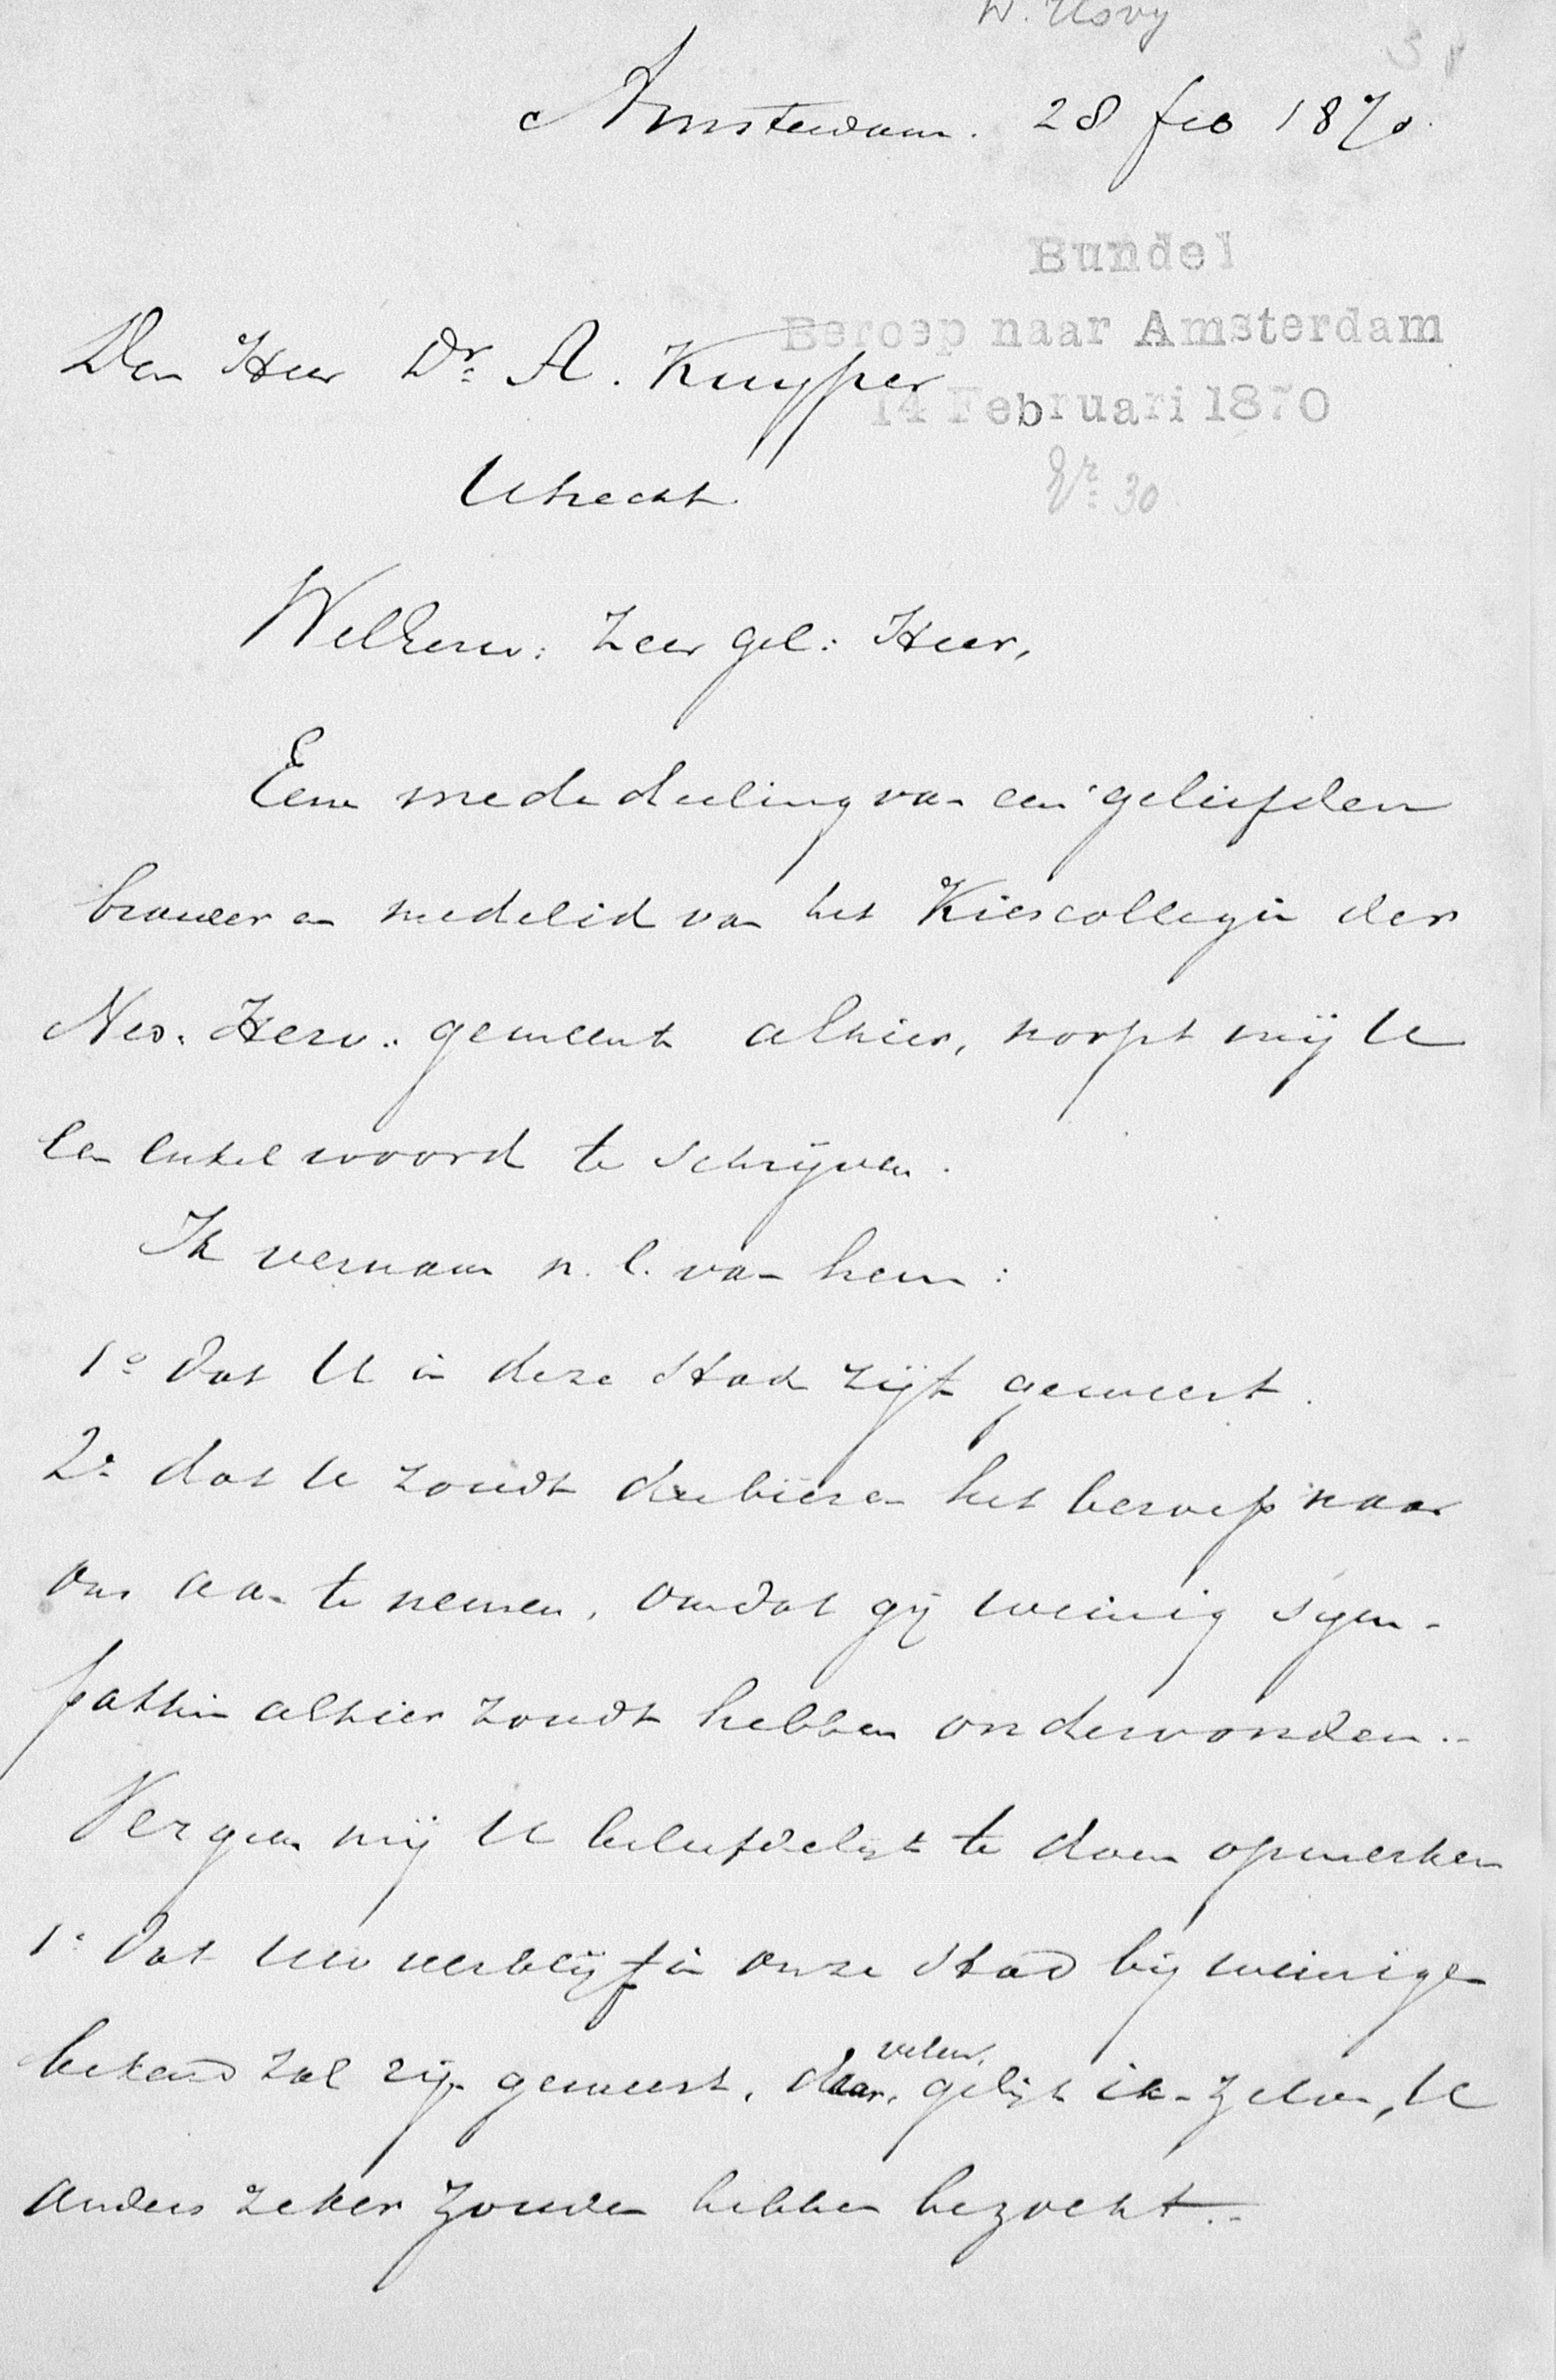 W. Hovy
Amsterdam. 28 feb 1870.
Bundel
Beroep naar Amsterdam
14 Februari 1870
Nr: 30
Den Heer Dr. A. Kuyper
Utrecht.
WelEerw: Zeer gel: Heer,
Eene mededeeling van een geliefden
broeder en medelid van het Kiescollegie der
Ned. Herv. gemeente alhier, noopt mij U
een enkel woord te schrijven.
Ik vernam n.l. van hem:
1o dat U in deze stad zijt geweest.
2o dat U zoudt dubieren het beroep naar
ons aan te nemen, omdat gij weinig sym-
pathie alhier zoudt hebben ondervonden..
Vergun mij U beleefdelijk te doen opmerken
1o dat uw verblijf in onze stad bij weinigen
bekend zal zijn geweest, daar velen, gelijk ik-zelve, U
anders zeker zouden hebben bezocht..